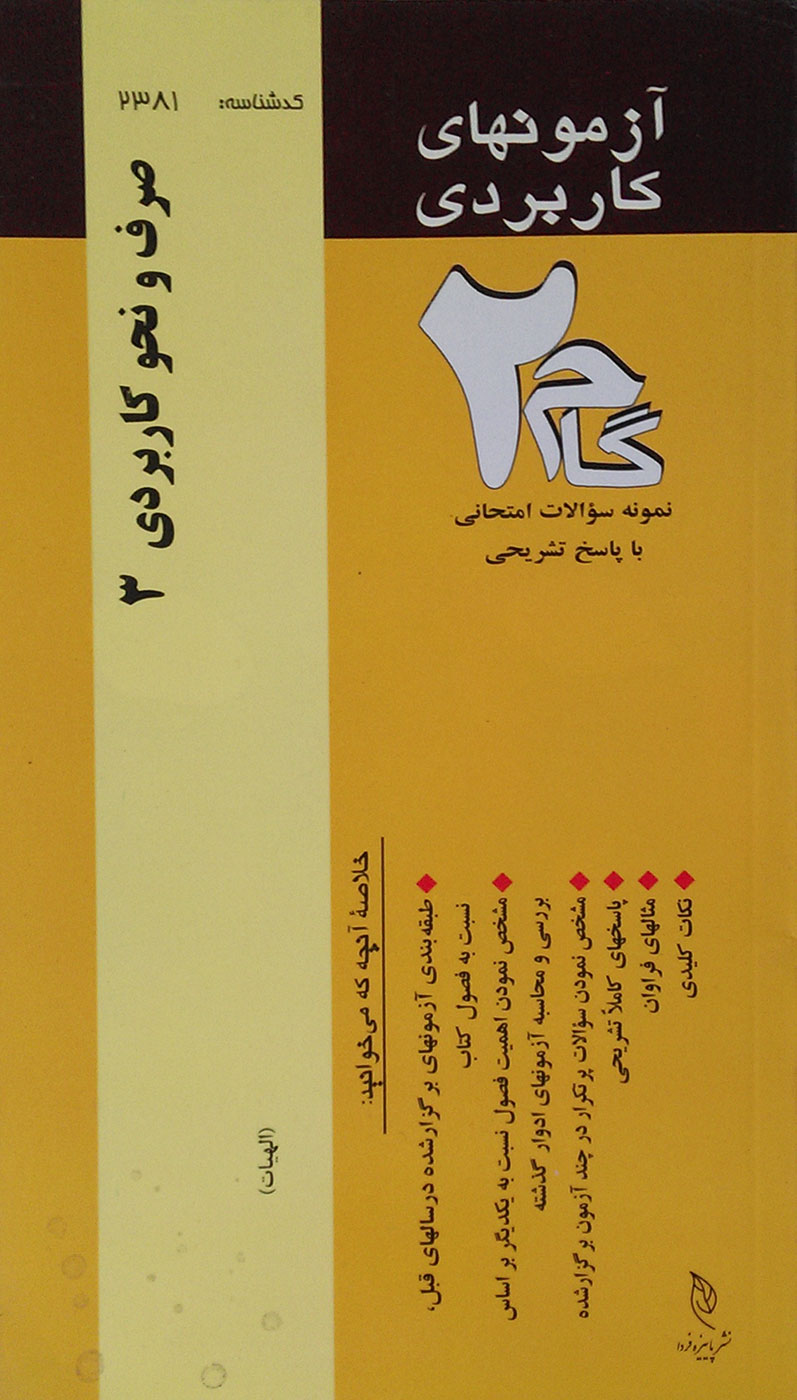 آزمونهای
کاربردی
گام ۲
نمونه سؤالات امتحانی
با پاسخ تشریحی
کدشناسه: ۲۳۸۱
صرف و نحو کاربردی ۳
(الهیات)
خلاصهٔ آنچه که می‌خوانید:
طبقه‌بندی آزمونهای برگزارشده درسالهای قبل،
نسبت به فصول کتاب
مشخص نمودن اهمیت فصول نسبت به یکدیگر بر اساس
بررسی و محاسبه آزمونهای ادوار گذشته
مشخص نمودن سؤالات پرتکرار در چند آزمون برگزارشده
پاسخهای کاملاً تشریحی
مثالهای فراوان
نکات کلیدی
نشر پاییزه فردا